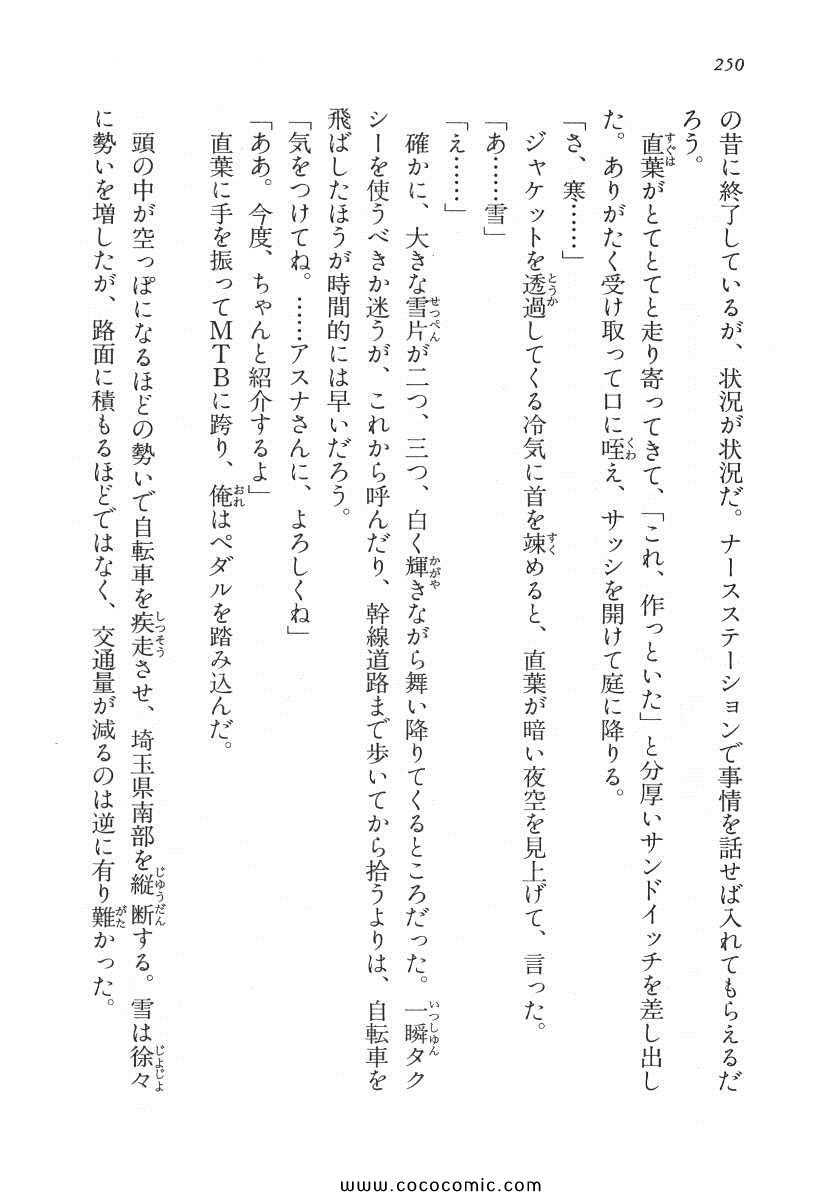 250
の昔に終了しているが、状況が状況だ。ナースステーションで事情を話せば入れてもらえるだ
ろう。
直葉がとてとてと走り寄ってきて、「これ、作っといた」と分厚いサンドイッチを差し出し
た。ありがたく受け取って口に咥え、サッシを開けて庭に降りる。
「さ、寒……」
ジャケットを透過してくる冷気に首を竦めると、直葉が暗い夜空を見上げて、言った。
「あ……雪」
「え……」
確かに、大きな雪片が二つ、三つ、白く輝きながら舞い降りてくるところだった。一瞬タク
シーを使うべきか迷うが、これから呼んだり、幹線道路まで歩いてから拾うよりは、自転車を
飛ばしたほうが時間的には早いだろう。
「気をつけてね。……アスナさんに、よろしくね」
「ああ。今度、ちゃんと紹介するよ」
直葉に手を振ってMTBに跨り、俺はペダルを踏み込んだ。
頭の中が空っぽになるほどの勢いで自転車を疾走させ、埼玉県南部を縦断する。雪は徐々
に勢いを増したが、路面に積もるほどではなく、交通量が減るのは逆に有り難かった。
www.cococomic.com